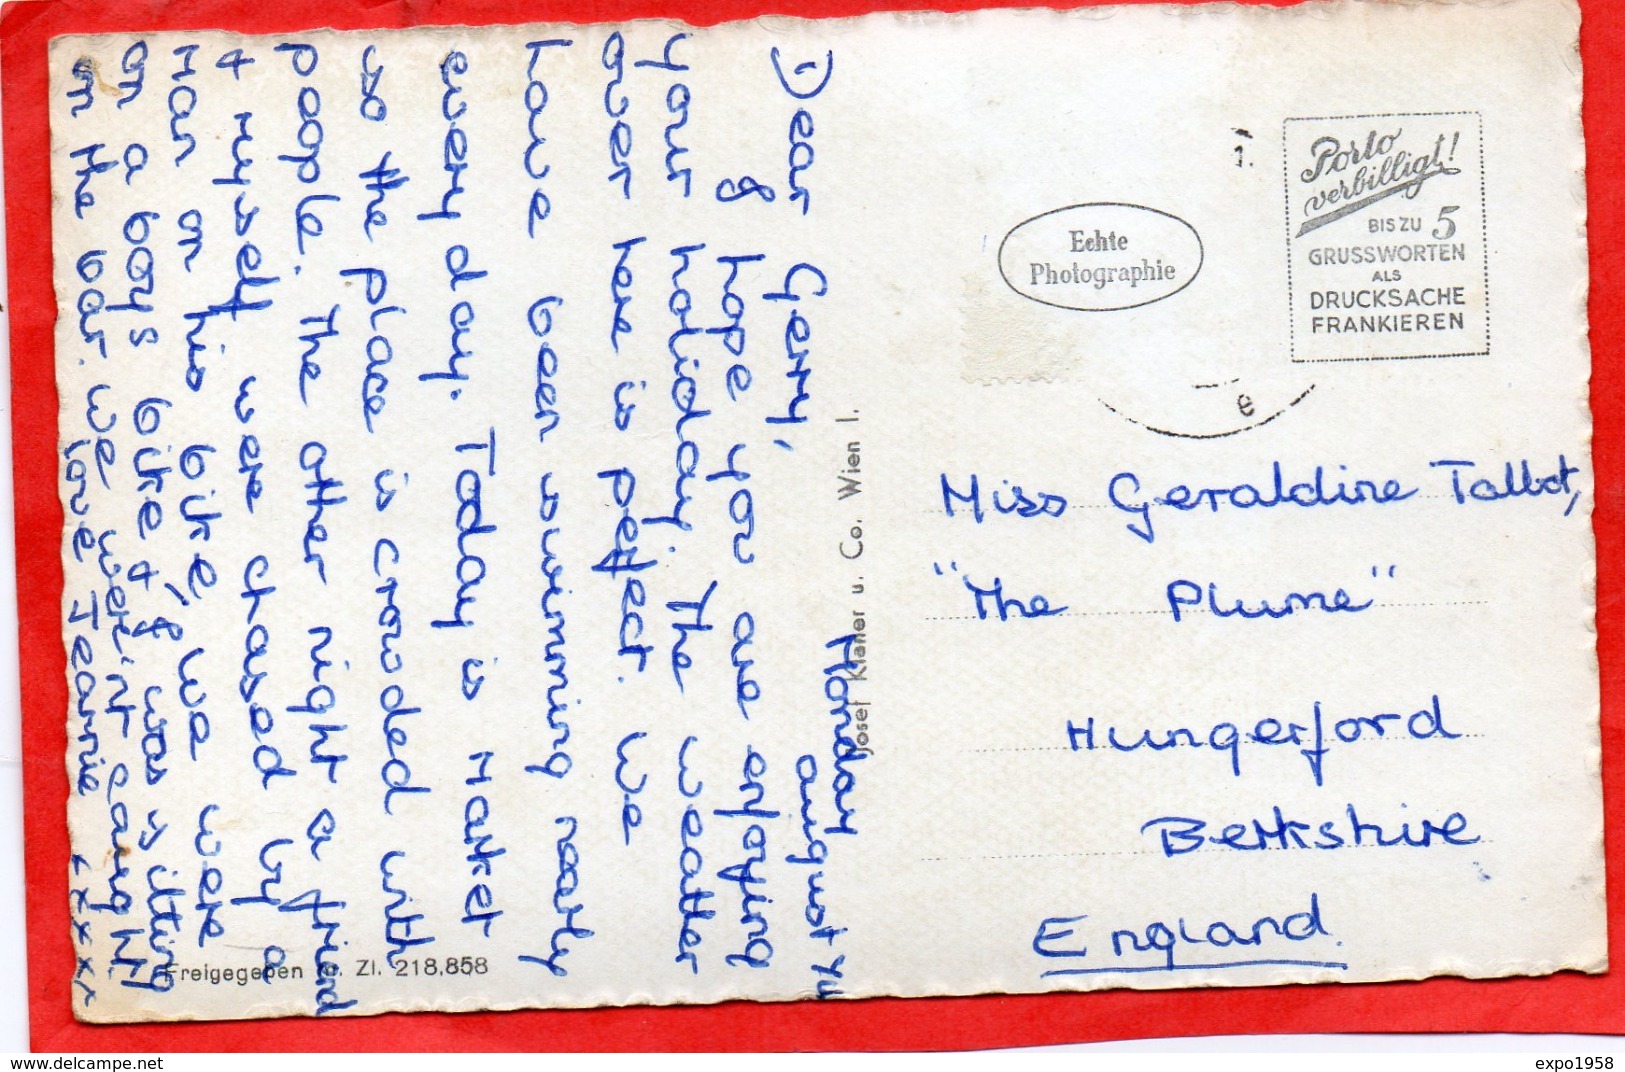 Monday
august
Dear Gerry,
I hope you are enjoying
your holiday. The weather
over here is peffect. We
have been swimming nearly
every day. Today is Market
so the place is crowded with
people. The other night a friend
& myself were chased by a
man on his bike, we were
on a boys bike & I was sitting
on the bar. we were'nt caught.
love Jeannie xxxx
Freigegeben Zl. 218.858
Josef Klaner u. Co. Wien I.
Echte
Photographie
Porto
verbilligt!
BIS ZU 5
GRUSSWORTEN
ALS
DRUCKSACHE
FRANKIEREN
1.
e
Miss Geraldine Talbot,
"The Plume"
Hungerford
Berkshire
England.
delcampe.net
expo1958